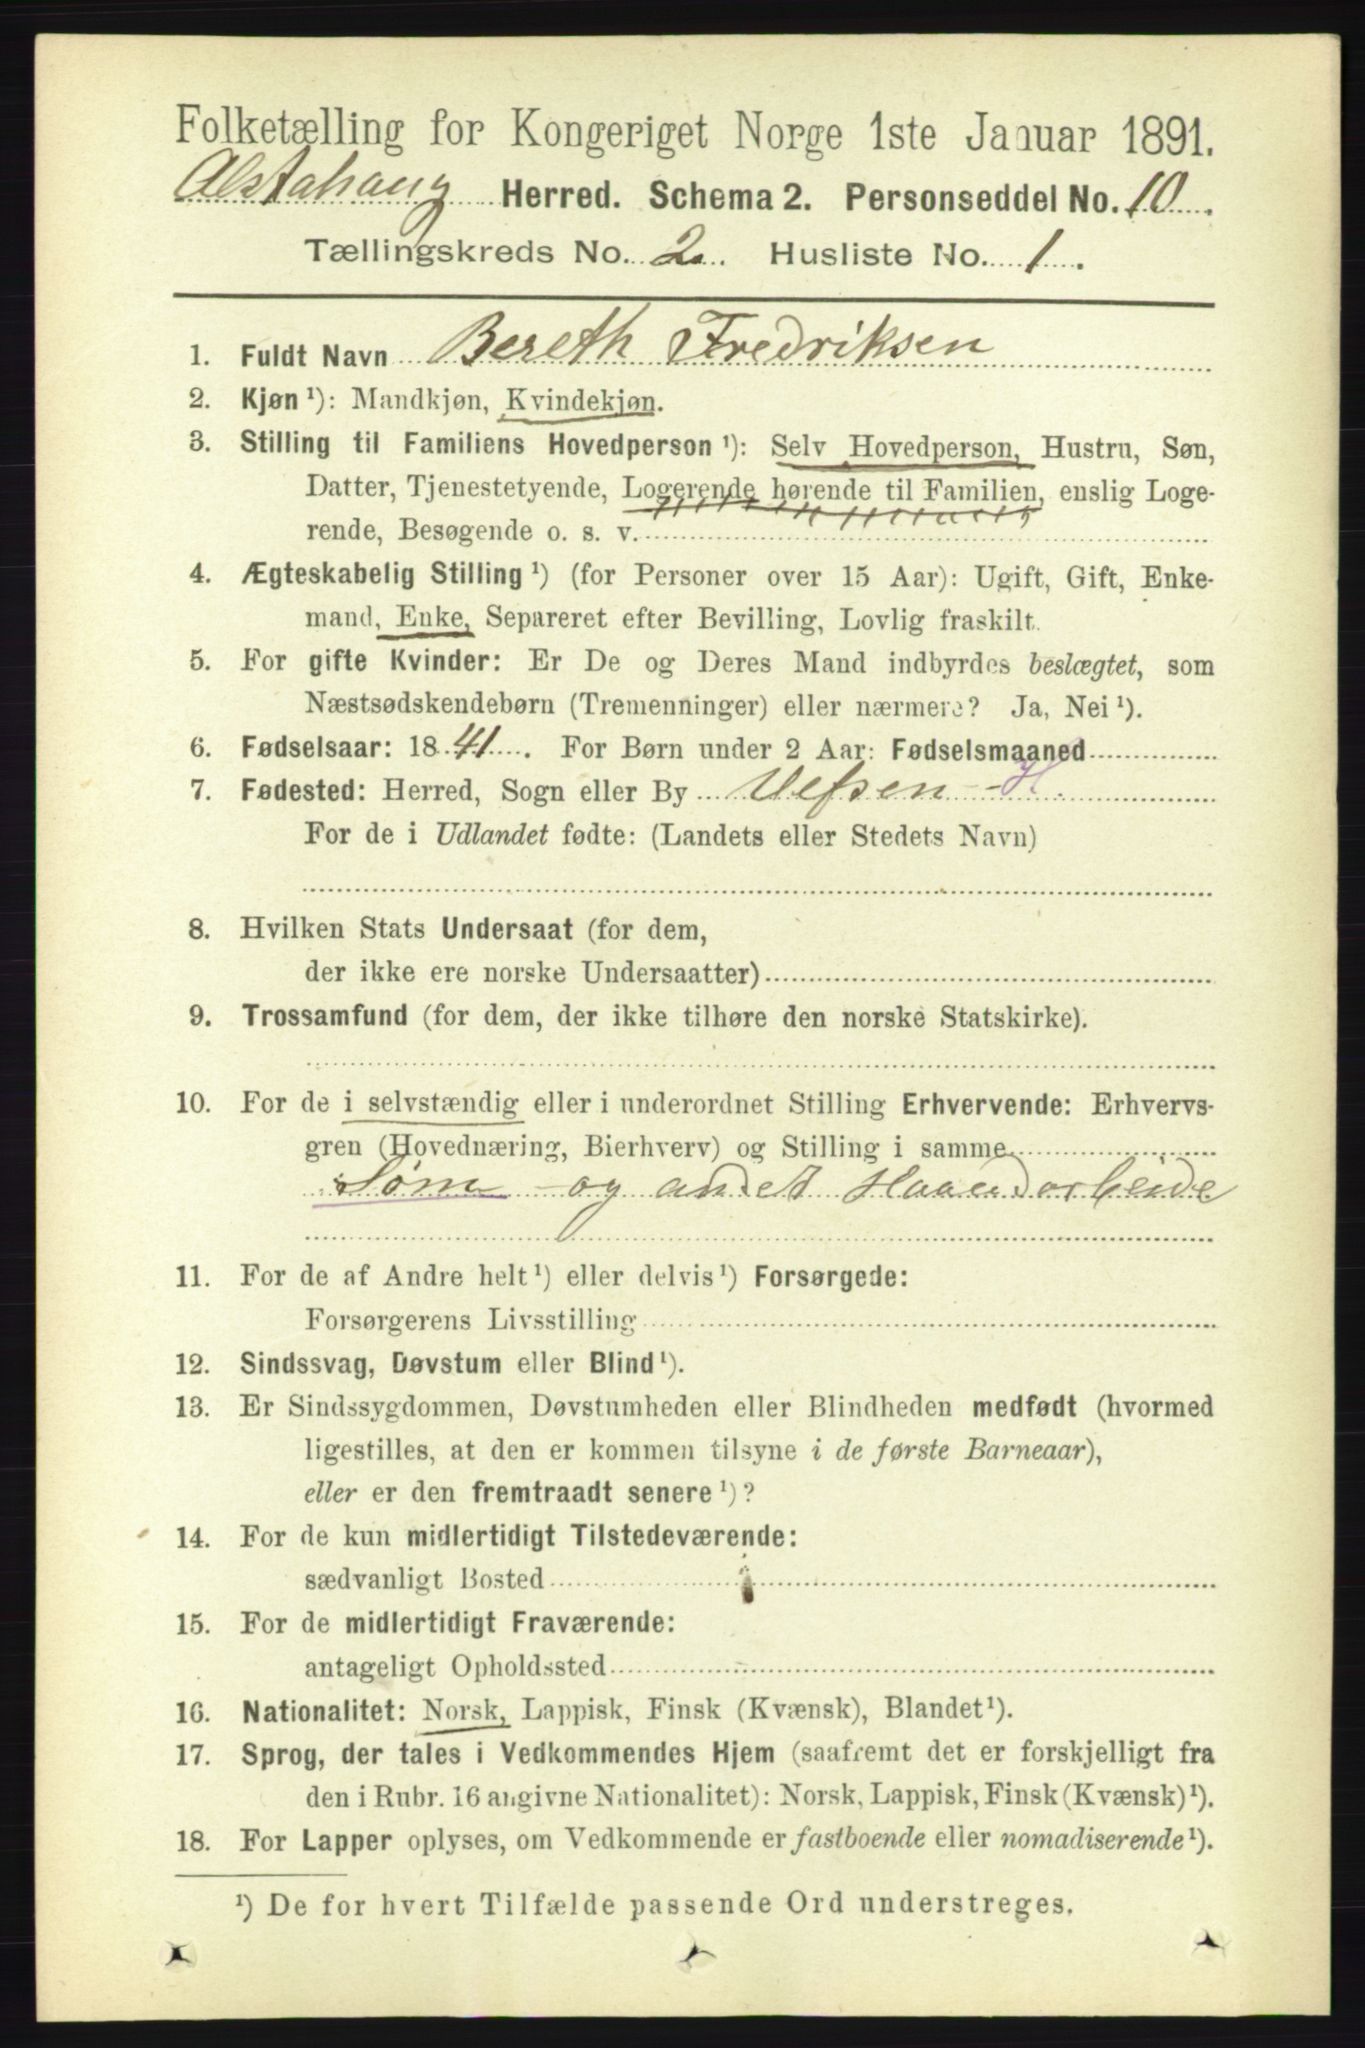 Folketælling for Kongeriget Norge 1ste Januar 1891.
Alstahaug Herred. Schema 2. Personseddel No. 10.
Tællingskreds No. 2. Husliste No. 1.
1. Fuldt Navn Bereth Fredriksen
2. Kjøn ¹): Mandkjøn, Kvindekjøn.
3. Stilling til Familiens Hovedperson ¹): Selv Hovedperson, Hustru, Søn,
Datter, Tjenestetyende, Logerende hørende til Familien, enslig Loge-
rende, Besøgende o. s. v.
4. Ægteskabelig Stilling ¹) (for Personer over 15 Aar): Ugift, Gift, Enke-
mand, Enke, Separeret efter Bevilling, Lovlig fraskilt.
5. For gifte Kvinder: Er De og Deres Mand indbyrdes beslægtet, som
Næstsødskendebørn (Tremenninger) eller nærmere? Ja, Nei ¹).
6. Fødselsaar: 1841. For Børn under 2 Aar: Fødselsmaaned
7. Fødested: Herred, Sogn eller By Vefsen - H.
For de i Udlandet fødte: (Landets eller Stedets Navn)
8. Hvilken Stats Undersaat (for dem,
der ikke ere norske Undersaatter)
9. Trossamfund (for dem, der ikke tilhøre den norske Statskirke).
10. For de i selvstændig eller i underordnet Stilling Erhvervende: Erhvervs-
gren (Hovednæring, Bierhverv) og Stilling i samme
Søm - og andet Haandarbeide
11. For de af Andre helt ¹) eller delvis ¹) Forsørgede:
Forsørgerens Livsstilling
12. Sindssvag, Døvstum eller Blind ¹).
13. Er Sindssygdommen, Døvstumheden eller Blindheden medfødt (hvormed
ligestilles, at den er kommen tilsyne i de første Barneaar),
eller er den fremtraadt senere ¹)?
14. For de kun midlertidigt Tilstedeværende:
sædvanligt Bosted
15. For de midlertidigt Fraværende:
antageligt Opholdssted
16. Nationalitet: Norsk, Lappisk, Finsk (Kvænsk), Blandet ¹).
17. Sprog, der tales i Vedkommendes Hjem (saafremt det er forskjelligt fra
den i Rubr. 16 angivne Nationalitet): Norsk, Lappisk, Finsk (Kvænsk) ¹).
18. For Lapper oplyses, om Vedkommende er fastboende eller nomadiserende ¹).
¹) De for hvert Tilfælde passende Ord understreges.